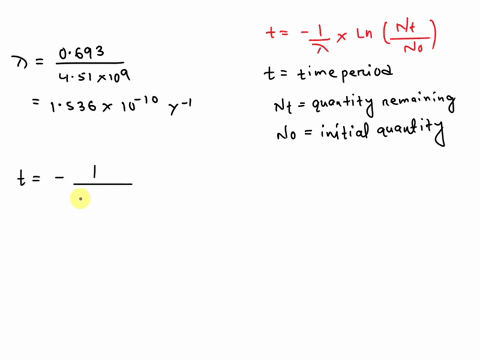 λ = 0.693 / 4.51 × 10⁹
= 1.536 × 10⁻¹⁰ y⁻¹
t = - 1/λ × Ln (Nt/No)
t = time period
Nt = quantity remaining
No = initial quantity
t = - 1